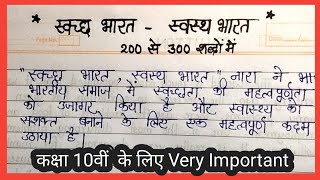 स्वच्छ भारत - स्वस्थ भारत
200 से 300 शब्दों में
"स्वच्छ भारत, स्वस्थ भारत" नारा ने भा
भारतीय समाज में स्वच्छता की महत्वपूर्णता
को उजागर किया है और स्वास्थ्य को
सशक्त बनाने के लिए एक महत्वपूर्ण कदम
उठाया है।
कक्षा 10वीं के लिए Very Important